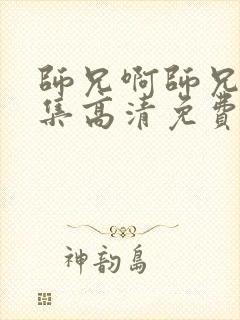 師兄啊師兄
集高清免費
神韵島